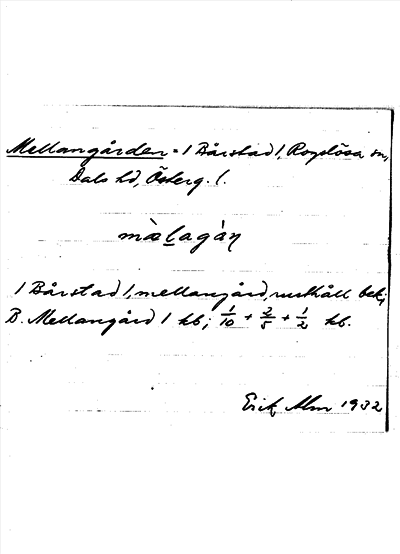 Mellangården = 1 Bårstad 1, Rogslösa sn,
Dals hd, Österg. l.
mæ̀lagàṇ
1 Bårstad 1, mellangård, rusthåll bek;
B. Mellangård 1 hb; 1/10 + 2/5 + 1/2 hb.
Erik Alm 1932